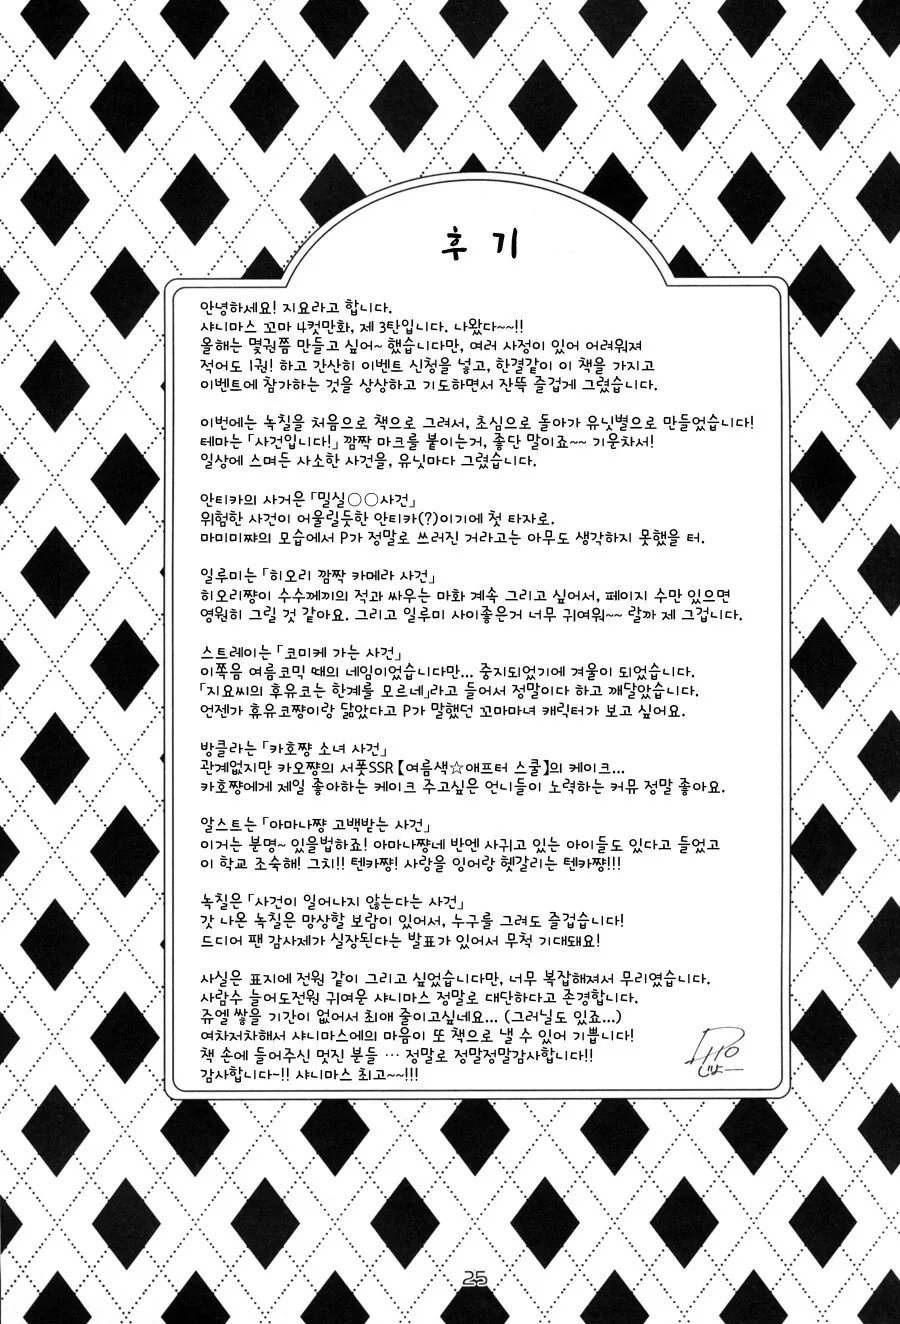 후 기
안녕하세요! 지요라고 합니다.
샤니마스 꼬마 4컷만화, 제 3탄입니다. 나왔다~~!!
올해는 몇권쯤 만들고 싶어~ 했습니다만, 여러 사정이 있어 어려워져
적어도 1권! 하고 간산히 이벤트 신청을 넣고, 한결같이 이 책을 가지고
이벤트에 참가하는 것을 상상하고 기도하면서 잔뜩 즐겁게 그렸습니다.
이번에는 녹칠을 처음으로 책으로 그려서, 초심으로 돌아가 유닛별으로 만들었습니다!
테마는 「사건입니다!」 깜짝 마크를 붙이는거, 좋단 말이죠~~ 기운차서!
일상에 스며든 사소한 사건을, 유닛마다 그렸습니다.
안티카의 사거은 「밀실○○사건」
위험한 사건이 어울릴듯한 안티카(?)이기에 첫 타자로.
마미미쨔의 모습에서 P가 정말로 쓰러진 거라고는 아무도 생각하지 못했을 터.
일루미는 「히오리 깜짝 카메라 사건」
히오리쨩이 수수께끼의 적과 싸우는 마화 계속 그리고 싶어서, 페이지 수만 있으면
영원히 그릴 것 같아요. 그리고 일루미 사이좋은거 너무 귀여워~~ 랄까 제 그겁니다.
스트레이는 「코미케 가는 사건」
이쪽음 여름코믹 때의 네임이었습니다만... 중지되었기에 겨울이 되었습니다.
「지요씨의 후유코는 한계를 모르네」라고 들어서 정말이다 하고 깨달았습니다.
언젠가 휴유코쨩이랑 닮았다고 P가 말했던 꼬마마녀 캐릭터가 보고 싶어요.
방클라는 「카호쨩 소녀 사건」
관계없지만 카오쨩의 서폿SSR【여름색☆애프터 스쿨】의 케이크...
카호쨩에게 제일 좋아하는 케이크 주고싶은 언니들이 노력하는 커뮤 정말 좋아요.
알스트는 「아마나쨩 고백받는 사건」
이거는 분명~ 있을법하죠! 아마나쨩네 반엔 사귀고 있는 아이들도 있다고 들었고
이 학교 조숙해! 그치!! 텐카쨩! 사랑을 잉어랑 헷갈리는 텐카쨩!!!
녹칠은 「사건이 일어나지 않는다는 사건」
갓 나온 녹칠은 망상할 보람이 있어서, 누구를 그려도 즐겁습니다!
드디어 팬 감사제가 실장된다는 발표가 있어서 무척 기대돼요!
사실은 표지에 전원 같이 그리고 싶었습니다만, 너무 복잡해져서 무리였습니다.
사람수 늘어도전원 귀여운 샤니마스 정말로 대단하다고 존경합니다.
쥬엘 쌓을 기간이 없어서 최애 줄이고싶네요... (그러닐도 있죠...)
여차저차해서 샤니마스에의 마음이 또 책으로 낼 수 있어 기쁩니다!
책 손에 들어주신 멋진 분들 … 정말로 정말정말감사합니다!!
감사합니다-!! 샤니마스 최고~~!!!
じよー
25